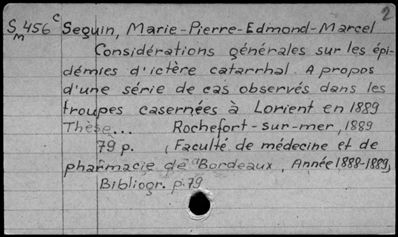 2
S 456 c Seguin, Marie-Pierre-Edmond-Marcel
m
Considérations générales sur les épi-
démies d'ictère catarrhal. A propos
d'une série de cas observés dans les
troupes casernées à Lorient en 1889
Thèse... Rochefort-sur-mer, 1889
79 p. (Faculté de médecine et de
pharmacie de Bordeaux, Année 1888-1889)
Bibliogr. p. 79